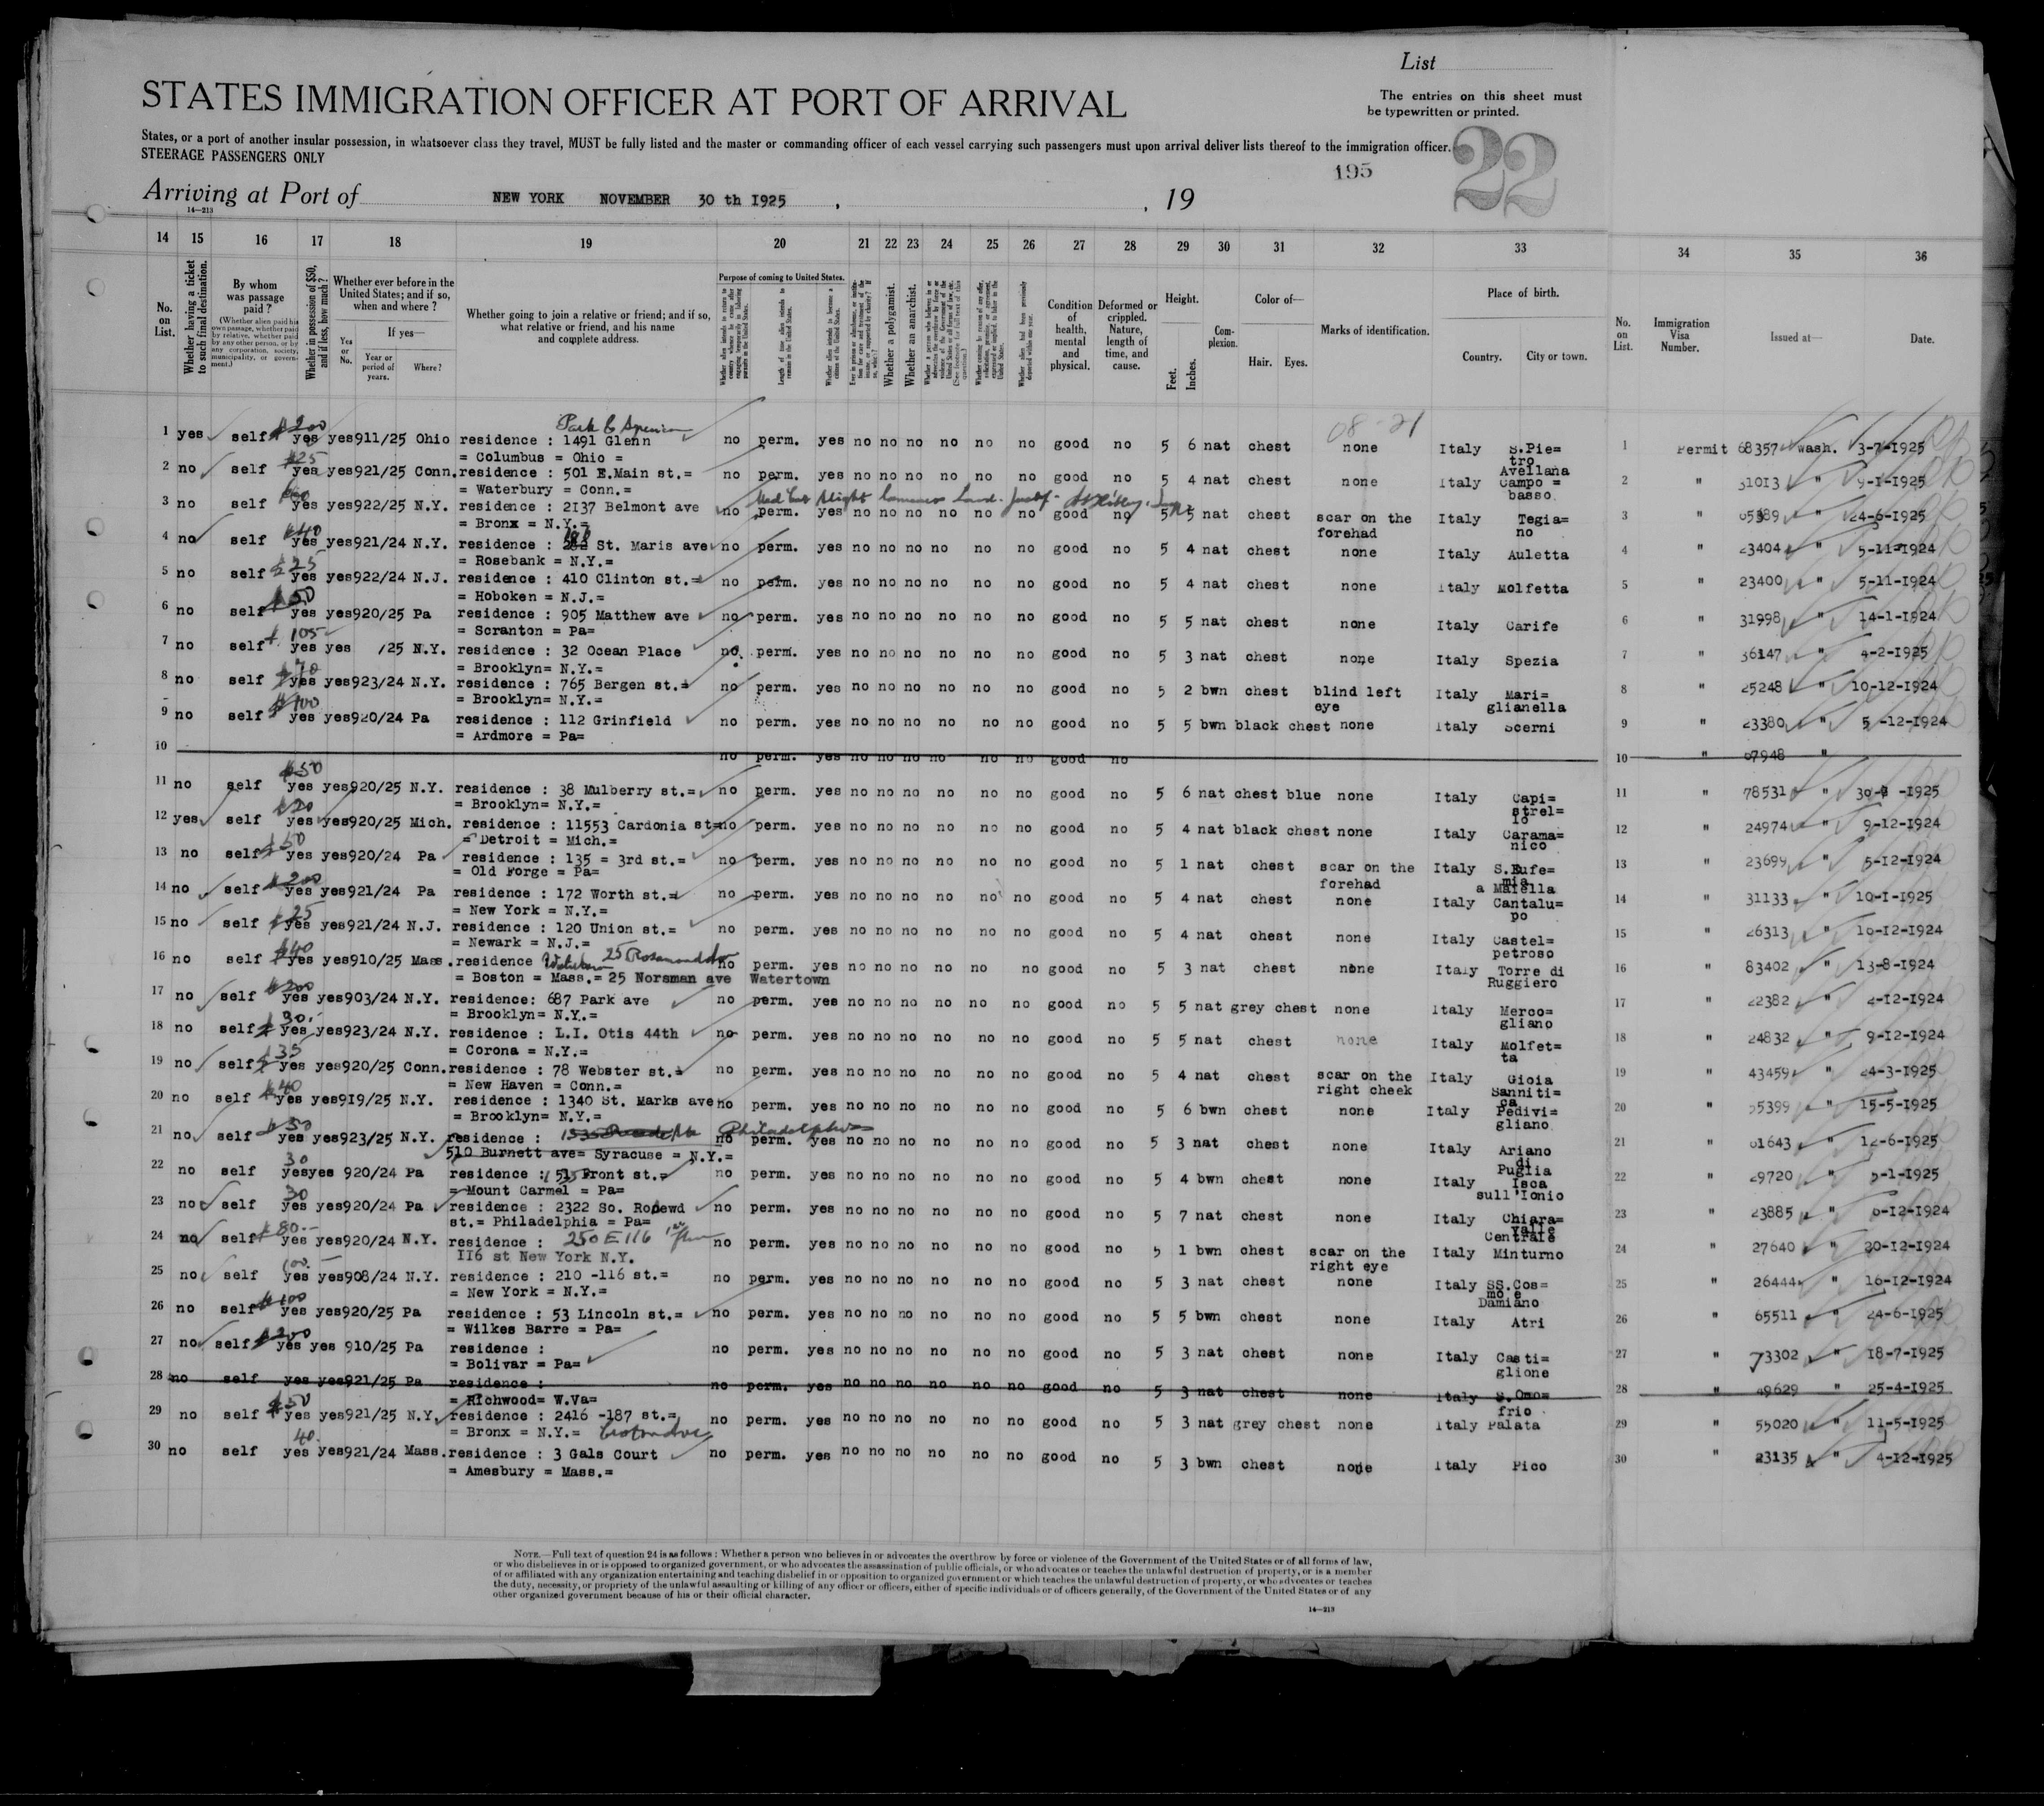 List
STATES IMMIGRATION OFFICER AT PORT OF ARRIVAL
The entries on this sheet must
be typewritten or printed.
States, or a port of another insular possession, in whatsoever class they travel, MUST be fully listed and the master or commanding officer of each vessel carrying such passengers must upon arrival deliver lists thereof to the immigration officer.
STEERAGE PASSENGERS ONLY
195
22
Arriving at Port of NEW YORK NOVEMBER 30 th I925 , , 19
14—213
14 15 16 17 18 19 20 21 22 23 24 25 26 27 28 29 30 31 32 33 34 35 36
No. on List.
Whether having a ticket to such final destination.
By whom was passage paid?
(Whether alien paid his own passage, whether paid by relative, whether paid by any other person, or by any corporation, society, municipality, or government.)
Whether in possession of $50, and if less, how much?
Whether ever before in the United States; and if so, when and where?
Yes or No.
If yes—
Year or period of years.
Where?
Whether going to join a relative or friend; and if so, what relative or friend, and his name and complete address.
Purpose of coming to United States.
Length of time alien intends to remain in the United States.
Whether alien intends to become a citizen of the United States.
Whether a polygamist.
Whether an anarchist.
Condition of health, mental and physical.
Deformed or crippled. Nature, length of time, and cause.
Height.
Feet. Inches.
Complexion.
Color of—
Hair. Eyes.
Marks of identification.
Place of birth.
Country. City or town.
No. on List.
Immigration Visa Number.
Issued at—
Date.
08-21
1 yes self $200 yes yes911/25 Ohio residence : 1491 Glenn no perm. yes no no no no no no good no 5 6 nat chest none Italy S.Pie= 1 Permit 68357 wash. 3-7-I925
= Columbus = Ohio = tro Avellana
2 no self $25 yes yes921/25 Conn. residence : 501 E.Main st.= no perm. yes no no no no no no good no 5 4 nat chest none Italy Campo = 2 " 31013 " 9-I-I925
= Waterbury = Conn.= basso
3 no self yes yes922/25 N.Y. residence : 2137 Belmont ave no perm. yes no no no no no no good no 5 5 nat chest scar on the Italy Tegia= 3 " 65389 " 24-6-I925
= Bronx = N.Y.= forehad no
4 no self $40 yes yes921/24 N.Y. residence : St. Maris ave no perm. yes no no no no no no good no 5 4 nat chest none Italy Auletta 4 " 23404 " 5-11-I924
= Rosebank = N.Y.=
5 no self $25 yes yes922/24 N.J. residence : 410 Clinton st.= no perm. yes no no no no no no good no 5 4 nat chest none Italy Molfetta 5 " 23400 " 5-11-I924
= Hoboken = N.J.=
6 no self $50 yes yes920/25 Pa residence : 905 Matthew ave no perm. yes no no no no no no good no 5 5 nat chest none Italy Carife 6 " 31998 " 14-1-I924
= Scranton = Pa=
7 no self $105 yes yes /25 N.Y. residence : 32 Ocean Place no. perm. yes no no no no no no good no 5 3 nat chest none Italy Spezia 7 " 36147 " 4-2-I925
= Brooklyn= N.Y.=
8 no self $70 yes yes923/24 N.Y. residence : 765 Bergen st.= no perm. yes no no no no no no good no 5 2 bwn chest blind left Italy Mari= 8 " 25248 " 10-12-I924
= Brooklyn= N.Y.= eye glianella
9 no self $100 yes yes920/24 Pa residence : 112 Grinfield no perm. yes no no no no no no good no 5 5 bwn black chest none Italy Scerni 9 " 23380 " 5 -12-I924
= Ardmore = Pa=
10 no perm. yes no no no no no no good no 10 " 67948 "
11 no self $50 yes yes920/25 N.Y. residence : 38 Mulberry st.= no perm. yes no no no no no no good no 5 6 nat chest blue none Italy Capi= 11 " 78531 " -I925
= Brooklyn= N.Y.= strel= lo
12 yes self $20 yes yes920/25 Mich. residence : 11553 Cardonia st= no perm. yes no no no no no no good no 5 4 nat black chest none Italy Carama= 12 " 24974 " 9-12-I924
= Detroit = Mich.= nico
13 no self $50 yes yes920/24 Pa residence : 135 = 3rd st.= no perm. yes no no no no no no good no 5 1 nat chest scar on the Italy S.Eufe= 13 " 23699 " 5-12-I924
= Old Forge = Pa= forehad mia a Maiella
14 no self $200 yes yes921/24 Pa residence : 172 Worth st.= no perm. yes no no no no no no good no 5 4 nat chest none Italy Cantalu= 14 " 31133 " 10-I-I925
= New York = N.Y.= po
15 no self $25 yes yes921/24 N.J. residence : 120 Union st.= no perm. yes no no no no no no good no 5 4 nat chest none Italy Castel= 15 " 26313 " 16-12-I924
= Newark = N.J.= petroso
16 no self $40 yes yes910/25 Mass. residence no perm. yes no no no no no no good no 5 3 nat chest none Italy Torre di 16 " 83402 " 13-8-I924
= Boston = Mass.= 25 Norsman ave Watertown Ruggiero
17 no self $200 yes yes903/24 N.Y. residence: 687 Park ave no perm. yes no no no no no no good no 5 5 nat grey chest none Italy Merco= 17 " 22382 " 2-12-I924
= Brooklyn= N.Y.= gliano
18 no self $30 yes yes923/24 N.Y. residence : L.I. Otis 44th no perm. yes no no no no no no good no 5 5 nat chest none Italy Molfet= 18 " 24832 " 9-12-I924
= Corona = N.Y.= ta
19 no self $35 yes yes920/25 Conn. residence : 78 Webster st.= no perm. yes no no no no no no good no 5 4 nat chest scar on the Italy Gioia 19 " 43459 " 24-3-I925
= New Haven = Conn.= right cheek Sanniti= ca
20 no self $40 yes yes9I9/25 N.Y. residence : 1340 St. Marks ave no perm. yes no no no no no no good no 5 6 bwn chest none Italy Pedivi= 20 " 55399 " 15-5-I925
= Brooklyn= N.Y.= gliano
21 no self $50 yes yes923/25 N.Y. residence : Philadelphia no perm. yes no no no no no no good no 5 3 nat chest none Italy Ariano 21 " 61643 " 12-6-I925
510 Burnett ave= Syracuse = N.Y.= di Puglia
22 no self 30 yesyes 920/24 Pa residence : Front st.= no perm. yes no no no no no no good no 5 4 bwn chest none Italy Isca 22 " 29720 " 5-1-I925
= Mount Carmel = Pa= sull'Ionio
23 no self 30 yes yes920/24 Pa residence : 2322 So. Rosewd no perm. yes no no no no no no good no 5 7 nat chest none Italy Chiara= 23 " 23885 " 6-12-I924
st.= Philadelphia = Pa= valle Centrale
24 no self $80.- yes yes920/24 N.Y. residence : 250 E 116 no perm. yes no no no no no no good no 5 1 bwn chest scar on the Italy Minturno 24 " 27640 " 20-12-I924
II6 st New York N.Y. right eye
25 no self 100.- yes yes908/24 N.Y. residence : 210 -116 st.= no perm. yes no no no no no no good no 5 3 nat chest none Italy SS.Cos= 25 " 26444 " 16-12-I924
= New York = N.Y.= mo e Damiano
26 no self $100 yes yes920/25 Pa residence : 53 Lincoln st.= no perm. yes no no no no no no good no 5 5 bwn chest none Italy Atri 26 " 65511 " 24-6-I925
= Wilkes Barre = Pa=
27 no self $200 yes yes 910/25 Pa residence : no perm. yes no no no no no no good no 5 3 nat chest none Italy Casti= 27 " 73302 " 18-7-I925
= Bolivar = Pa= glione
28 no self yes yes921/25 Pa residence : no perm. yes no no no no no no good no 5 3 nat chest none Italy S.Ono= 28 " 49629 " 25-4-I925
= Richwood= W.Va= frio
29 no self $50 yes yes921/25 N.Y. residence : 2416 -187 st.= no perm. yes no no no no no no good no 5 3 nat grey chest none Italy Palata 29 " 55020 " 11-5-I925
= Bronx = N.Y.=
30 no self 40. yes yes921/24 Mass. residence : 3 Gals Court no perm. yes no no no no no no good no 5 3 bwn chest none Italy Pico 30 " 23135 " 4-12-I925
= Amesbury = Mass.=
NOTE.—Full text of question 24 is as follows: Whether a person who believes in or advocates the overthrow by force or violence of the Government of the United States or of all forms of law,
or who disbelieves in or is opposed to organized government, or who advocates the assassination of public officials, or who advocates or teaches the unlawful destruction of property, or is a member
of or affiliated with any organization entertaining and teaching disbelief in or opposition to organized government or which teaches the unlawful destruction of property, or who advocates or teaches
the duty, necessity, or propriety of the unlawful assaulting or killing of any officer or officers, either of specific individuals or of officers generally, of the Government of the United States or of any
other organized government because of his or their official character.
14—213